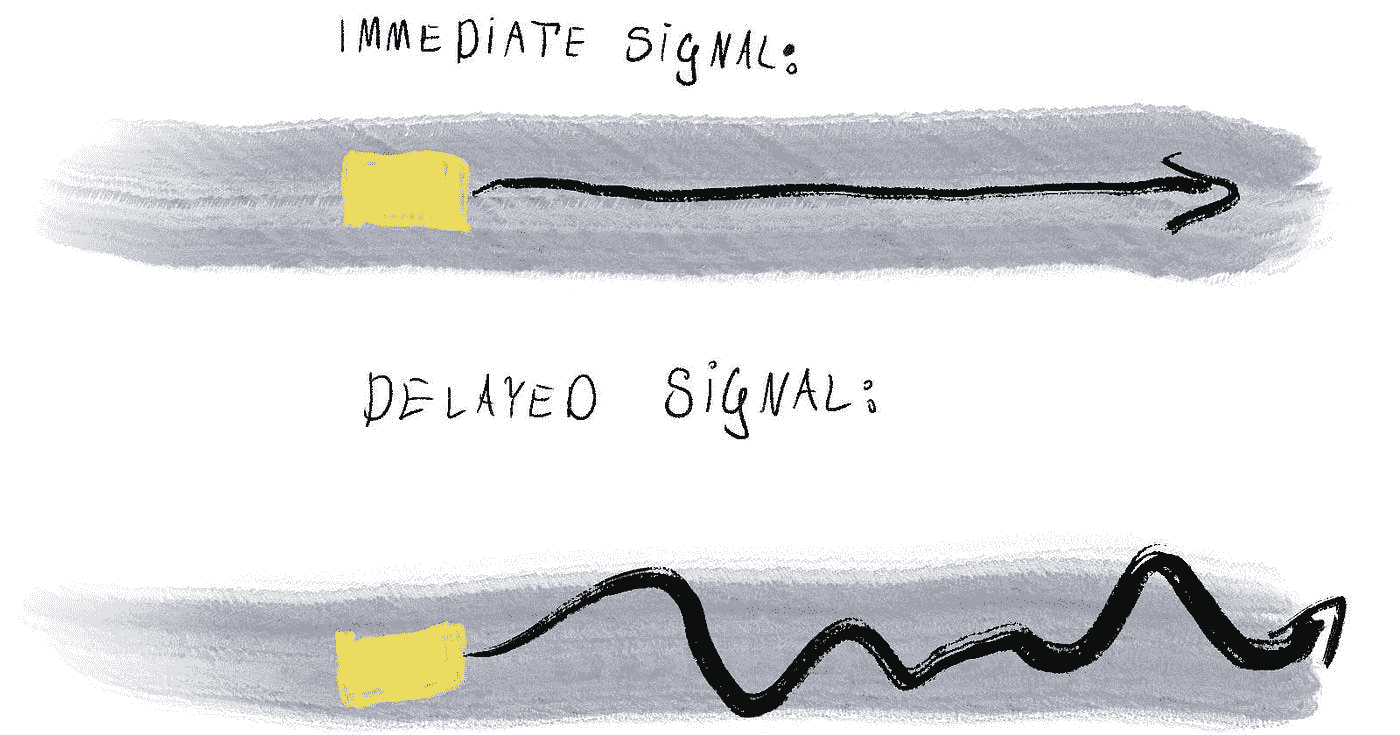 IMMEDiATE SiGNAL:
DELAYED SiGNAL: